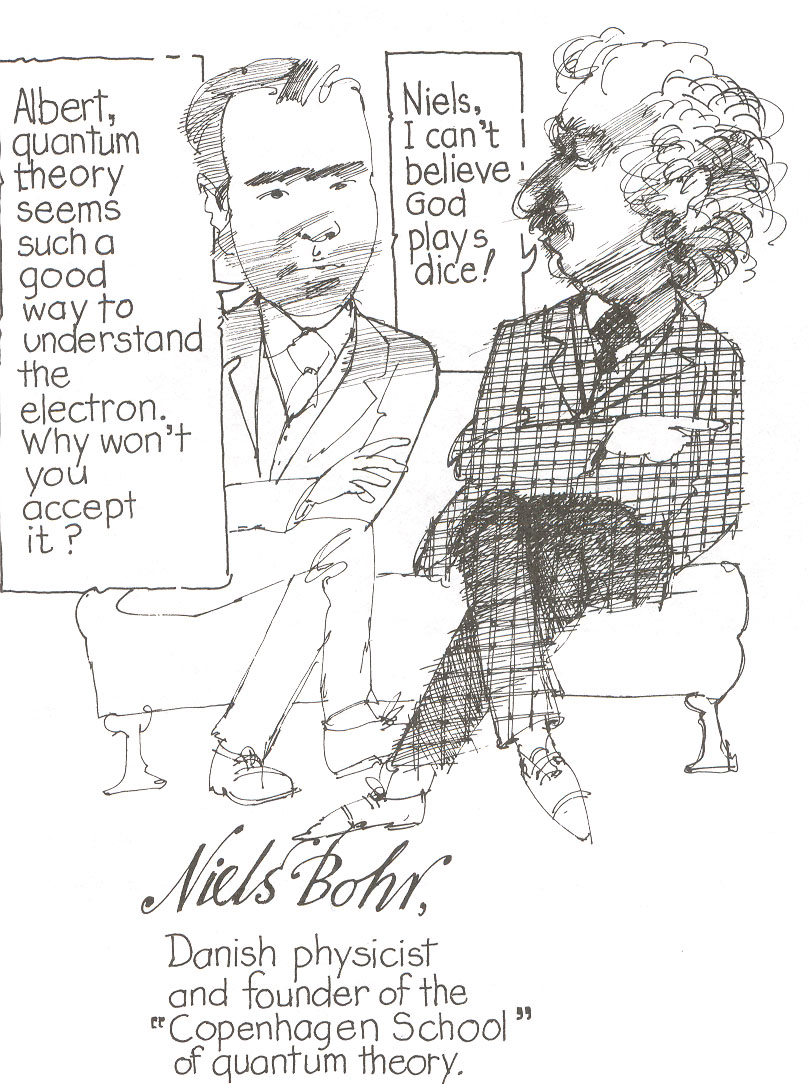 Albert,
quantum
theory
seems
such a
good
way to
understand
the
electron.
Why won't
you
accept
it?
Niels,
I can't
believe
God
plays
dice!
Niels Bohr,
Danish physicist
and founder of the
"Copenhagen School"
of quantum theory.